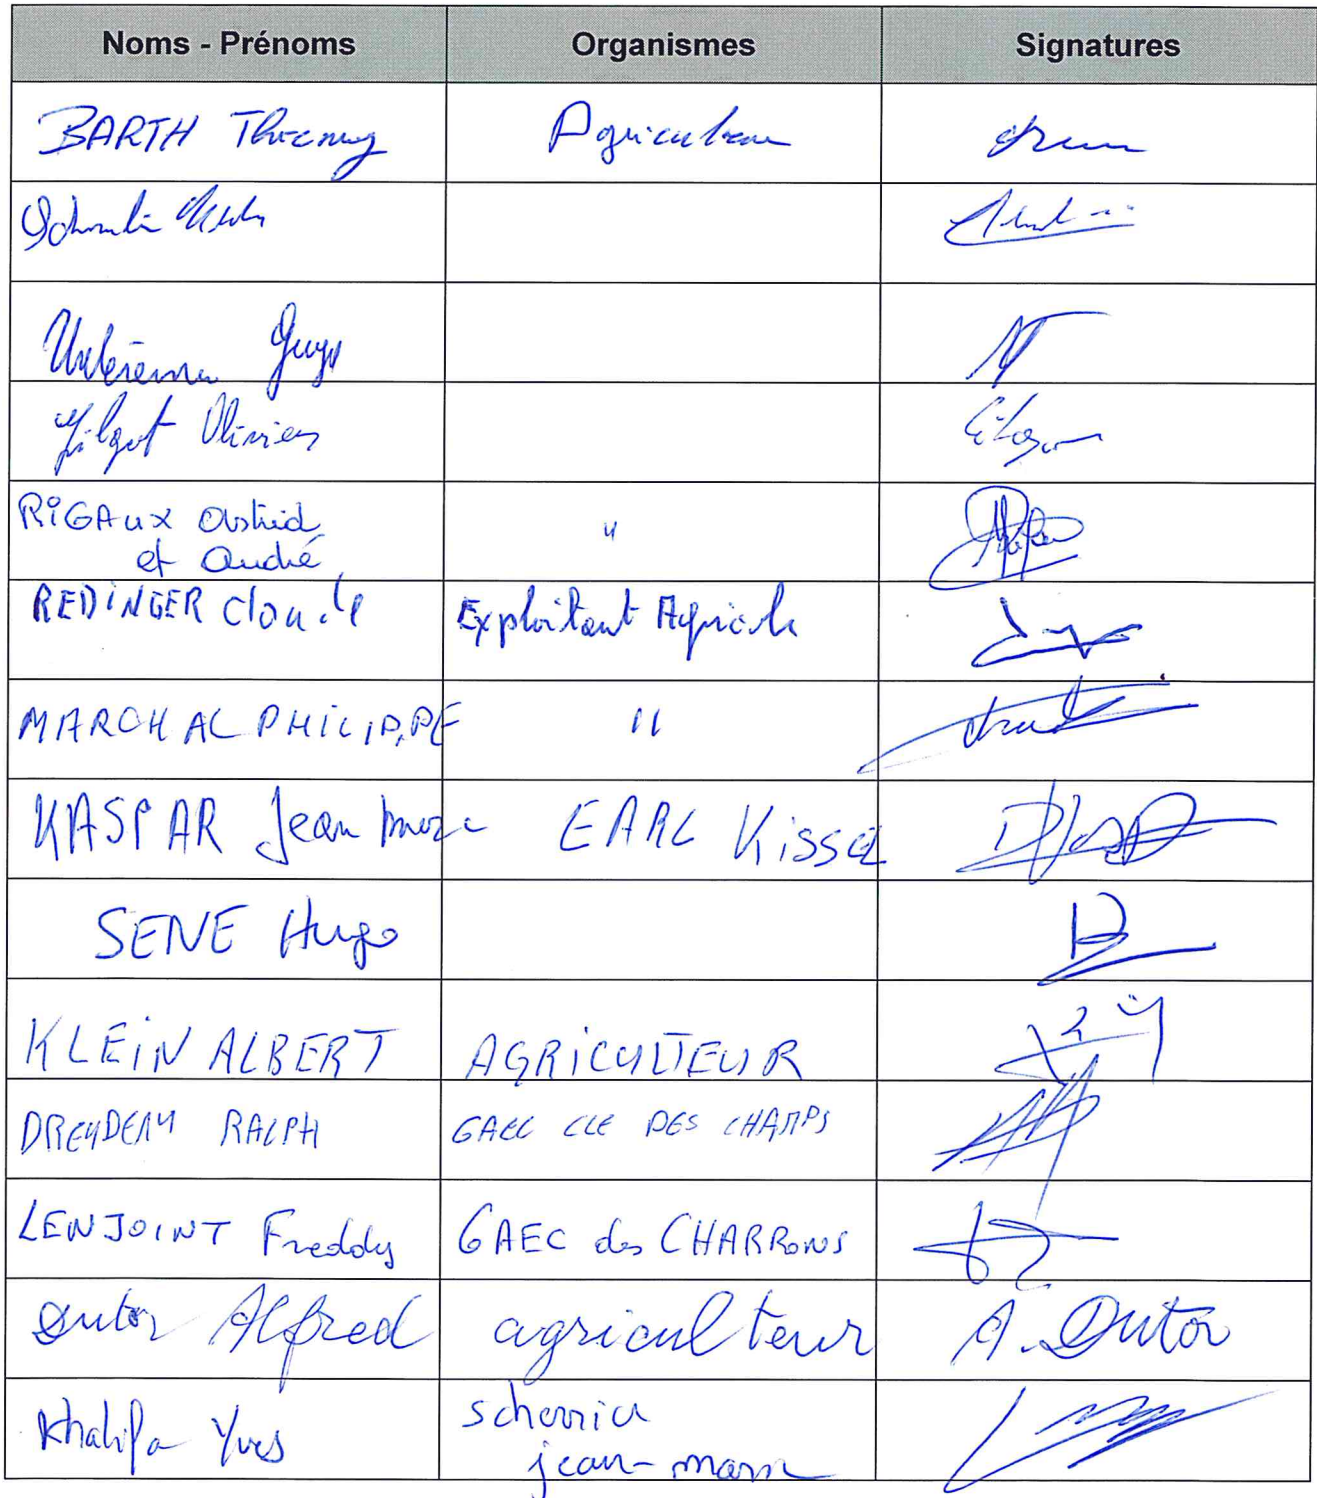 Noms - Prénoms Organismes Signatures
BARTH Thierry Agriculteur
Guy
Olivier
RiGAux Astrid "
et André
REDiNGER Claude Exploitant Agricole
MARCHAL PHILIPPE "
KASPAR Jean marc EARL Kissel
SENE Hugo
KLEiN ALBERT AGRiCULTEUR
RALPH GAEC CLE DES CHAMPS
LENJOINT Freddy GAEC des CHARRONS
Dutor Alfred agriculteur A. Dutor
Khalifa Yves
jean-marie